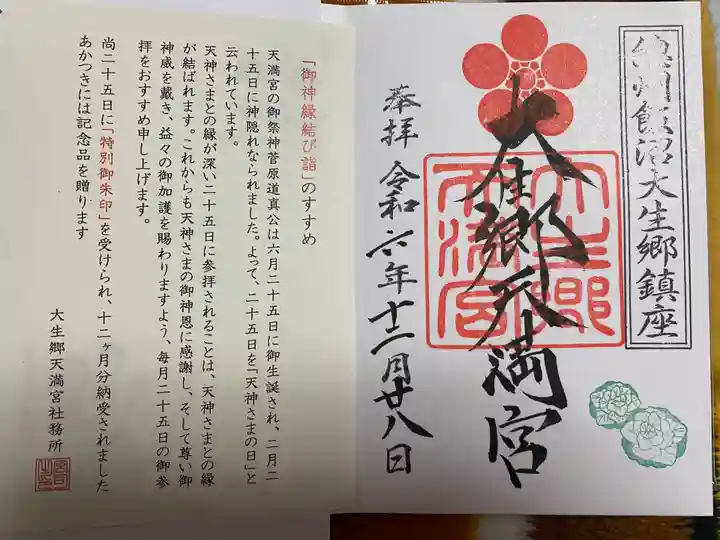 總州飯沼大生郷鎮座
大生郷天満宮
奉拝 令和六年十二月廿八日
「御神縁結び詣」のすすめ
天満宮の御祭神菅原道真公は六月二十五日に御生誕され、二月二
十五日に神隠れなられました。よって、二十五日を「天神さまの日」と
云われています。
天神さまとの縁が深い二十五日に参拝されることは、天神さまとの縁
が結ばれます。これからも天神さまの御神恩に感謝し、そして尊い御
神威を戴き、益々の御加護を賜わりますよう、毎月二十五日の御参
拝をおすすめ申し上げます。
尚二十五日に「特別御朱印」を受けられ、十二ヶ月分納受されました
あかつきには記念品を贈ります
大生郷天満宮社務所